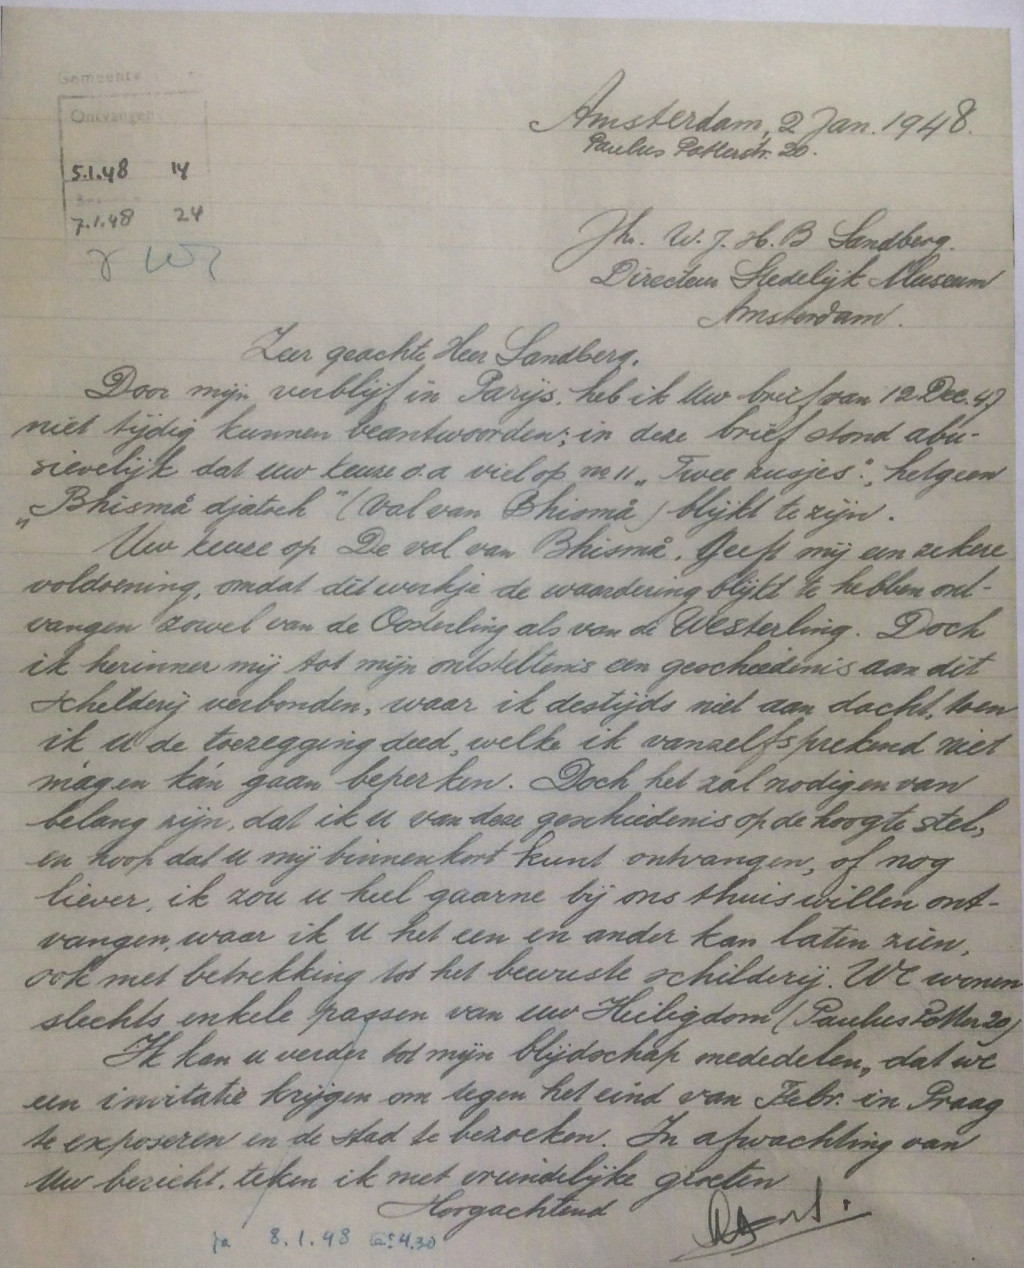 Gemeente
Ontvangen
5.1.48 14
7.1.48 24
Amsterdam, 2 Jan. 1948.
Paulus Potterstr. 20.
Jhr. W. J. H. B Sandberg.
Directeur Stedelijk Museum
Amsterdam.
Zeer geachte Heer Sandberg.
Door mijn verblijf in Parijs, heb ik Uw brief van 12 Dec. 47
niet tijdig kunnen beantwoorden; in deze brief stond abu-
sievelijk dat uw keuze o.a viel op no 11 „Twee zusjes", hetgeen
„Bhismå djatoeh" (Val van Bhismå) blijkt te zijn.
Uw keuze op De val van Bhismå, geeft mij een zekere
voldoening, omdat dit werkje de waardering blijkt te hebben ont-
vangen zowel van de Oosterling als van de Westerling. Doch
ik herinner mij tot mijn ontsteltenis een geschiedenis aan dit
schilderij verbonden, waar ik destijds niet aan dacht, toen
ik u de toezegging deed, welke ik vanzelfsprekend niet
mag en kán gaan beperken. Doch het zal nodig en van
belang zijn, dat ik u van deze geschiedenis op de hoogte stel,
en hoop dat u mij binnenkort kunt ontvangen, of nog
liever, ik zou u heel gaarne bij ons thuis willen ont-
vangen, waar ik u het een en ander kan laten zien,
ook met betrekking tot het bewuste schilderij. We wonen
slechts enkele passen van uw Heiligdom (Paulus Potter 20)
Ik kan u verder tot mijn blijdschap mededelen, dat we
een invitatie krijgen om tegen het eind van Febr. in Praag
te exposeren en de stad te bezoeken. In afwachting van
Uw bericht, teken ik met vriendelijke groeten
Hoogachtend
ja 8.1.48 4.30